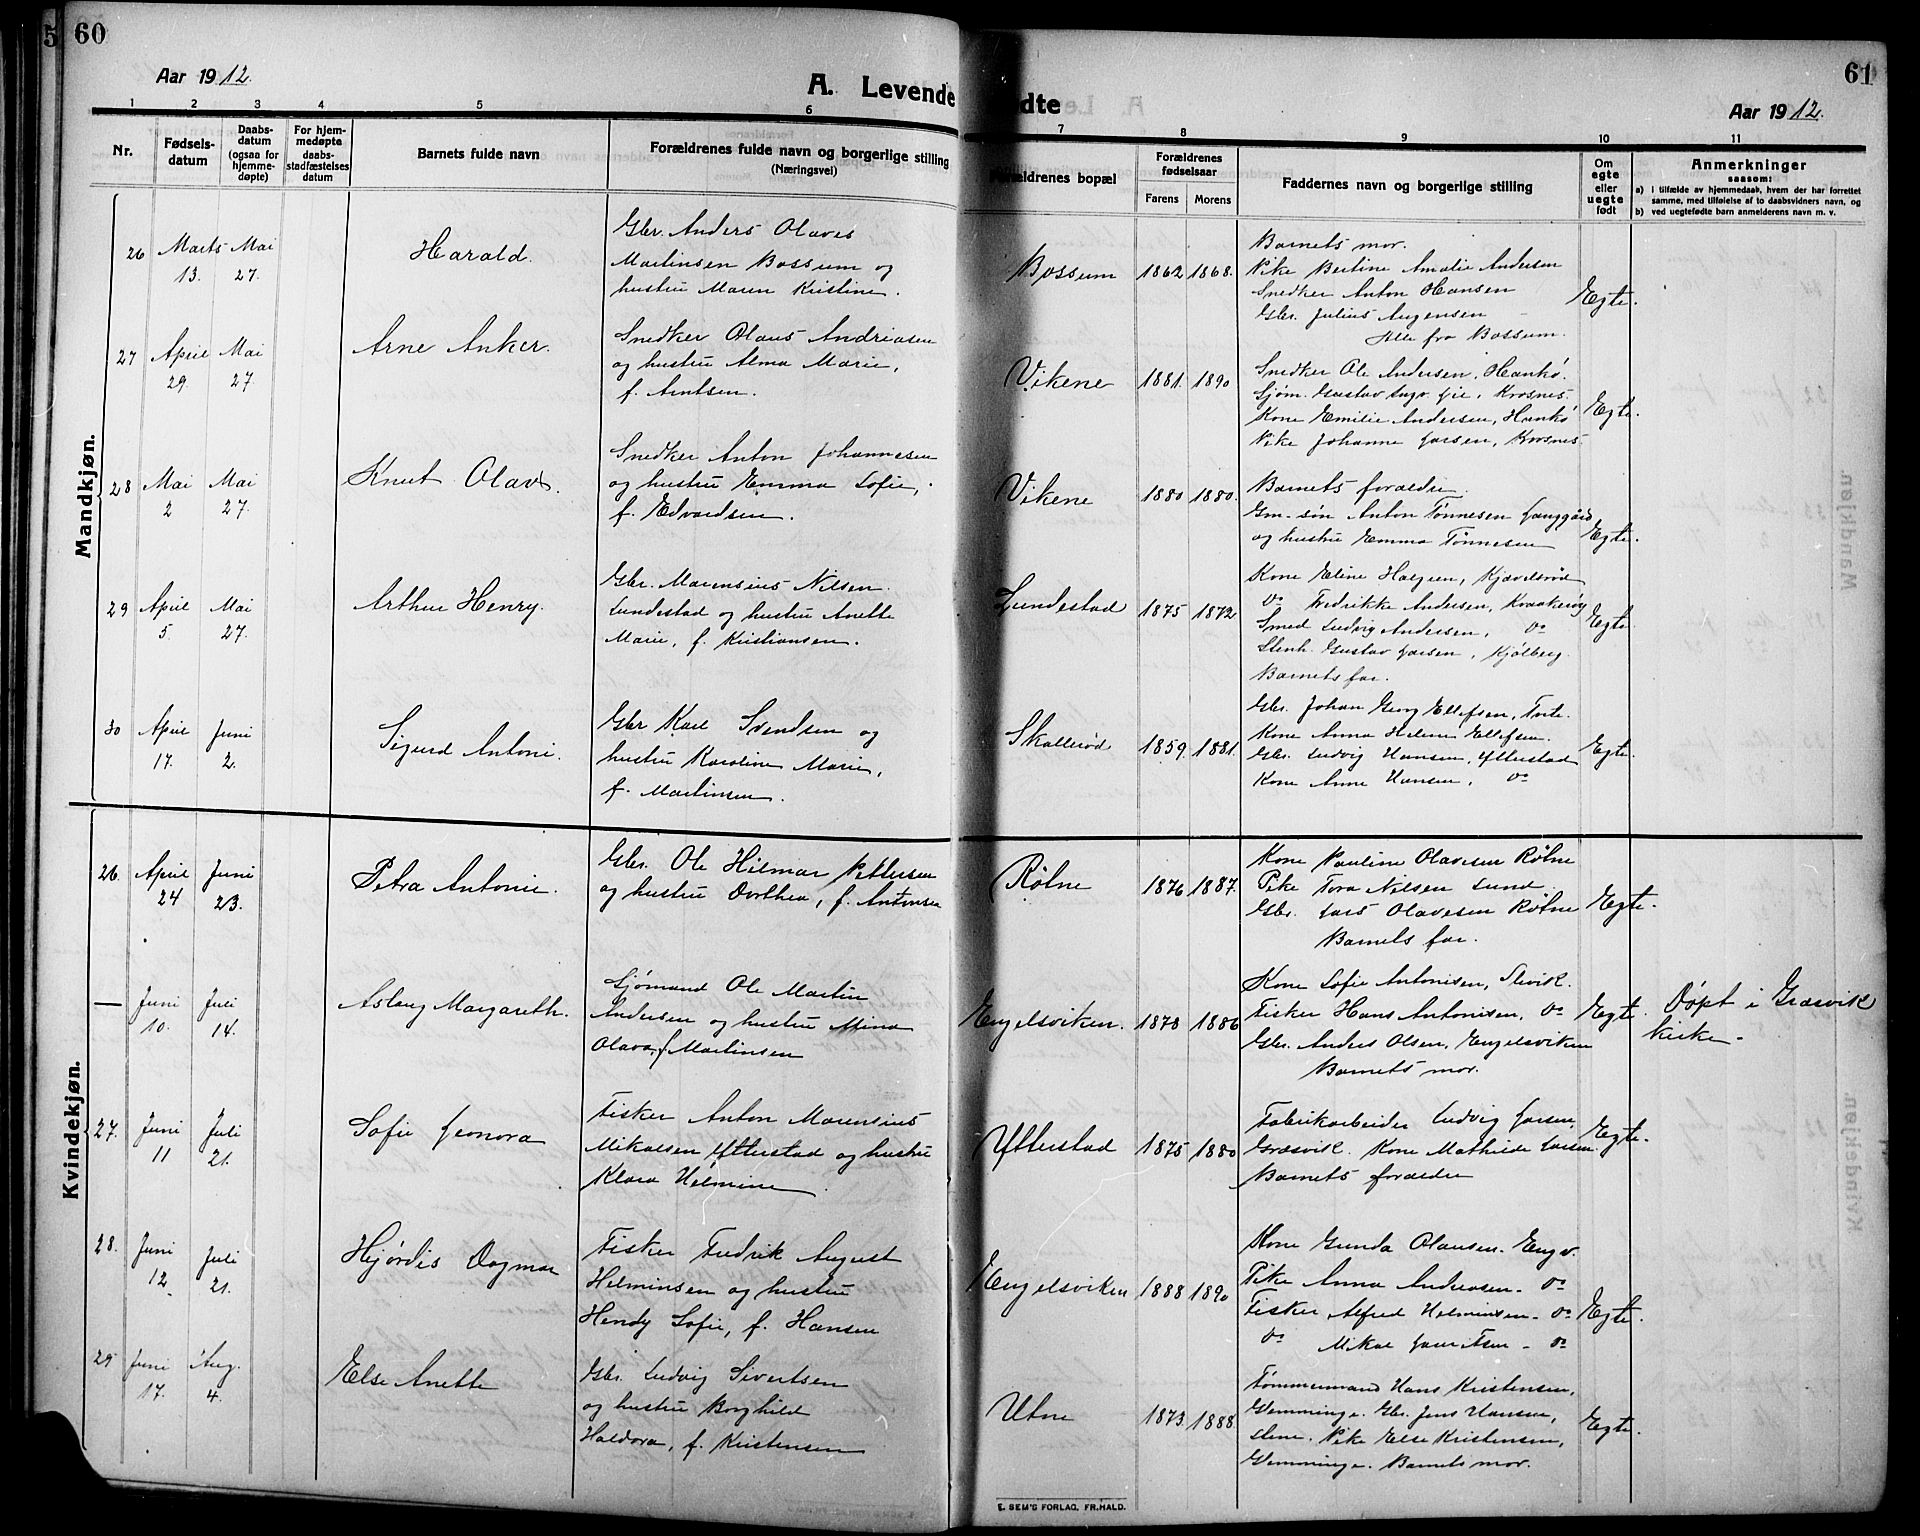 5 60
Aar 1912.
A. Levende
1 2 3 4 5 6
Nr.
Fødsels-
datum
Daabs-
datum
(ogsaa for
hjemme-
døpte)
For hjem-
medøpte
daabs-
stadfæstelses
datum
Barnets fulde navn
Forældrenes fulde navn og borgerlige stilling
(Næringsvei)
Mandkjøn.
26 Marts 13. Mai 27. Harald.
Gbr. Anders Olaves
Martinsen Bossum og
hustru Maren Kristine.
27 April 29. Mai 27. Arne Anker.
Snedker Olaus Andriasen
og hustru Alma Marie,
f. Arntsen.
28 Mai 2 Mai 27. Knut Olav.
Snedker Anton Johannesen
og hustru Emma Sofie,
f. Edvardsen.
29 April 5. Mai 27. Arthur Henry.
Gbr. Marensius Nilsen
Lundestad og hustru Anette
Marie, f. Kristiansen.
30 April 17. Juni 2. Sigurd Antoni.
Gbr Karl Svendsen og
hustru Karoline Marie,
f. Martinsen.
Kvindekjøn.
26. April 24 Juni 23. Petra Antonie.
Gbr. Ole Hilmar Pettersen
og hustru Dorthea, f. Antonsen
— Juni 10. Juli 14. Aslaug Margareth.
Sjømand Ole Martin
Andersen og hustru Mina
Olava, f. Martinsen
27. Juni 11 Juli 21. Sofie Leonora
Fisker Anton Marensius
Mikalsen Ytterstad og hustru
Klara Helmine.
28. Juni 12 Juli 21. Hjørdis Dagmar
Fisker Fredrik August
Helminsen og hustru
Hendy Sofie, f. Hansen
29 Juni 17. Aug. 4. Else Anette
Gbr. Ludvig Sivertsen
og hustru Borghild
Haldora, f. Kristensen
61
ødte
Aar 1912.
7 8 9 10 11
Forældrenes bopæl
Forældrenes
fødselsaar
Farens Morens
Faddernes navn og borgerlige stilling
Om
egte
eller
uegte
født
Anmerkninger
saasom:
a) i tilfælde av hjemmedaab, hvem der har forrettet
samme, med tilføielse af to daabsvidners navn, og
b) ved uegtefødte barn anmelderens navn m. v.
Bossum 1862 1868. Egte.
Barnets mor.
Pike Bertine Amalie Andersen
Snedker Anton Hansen
Gbr. Julius Augensen
Alle fra Bossum.
Vikene 1881. 1890 Egte.
Snedker Ole Andersen, Hankø.
Sjøm. Gustav Ingv. Gje, Krosnes.
Kone Emilie Andersen, Hankø
Pike Johanne Larsen, Korsnes.
Vikene 1880 1880. Egte.
Barnets forældre.
Gm. søn Anton Tønnesen Langgård
og hustru Emma Tønnesen
Lundestad 1875 1872 Egte.
Kone Eline Halgsen, Kjævelsrød
Do Fredrikke Andersen, Kraakerøy
Smed Ludvig Andersen, Do
Stenh. Gustav Larsen, Kjølberg.
Barnets far.
Skallerød 1859. 1881. Egte.
Gbr. Johan Georg Ellefsen, Tvete.
Kone Anna Helene Ellefsen.
Gbr. Ludvig Hansen, Ytterstad
Kone Anne Hansen, Do
Røtne 1876 1887. Egte.
Kone Pauline Olavesen Røtne
Pike Tora Nilsen Lund.
Gbr. Lars Olavesen Røtne
Barnets far.
Engelsviken. 1878 1886 Egte. Døpt i Græsvik
kirke.
Kone Sofie Antonisen, Slevik.
Fisker Hans Antonisen, Do
Gbr. Anders Olsen, Engelsviken
Barnets mor.
Ytterstad 1875 1880 Egte.
Fabrikarbeider Ludvig Larsen,
Græsvik. Kone Mathilde Larsen
Barnets forældre
Engelsviken 1888 1890 Egte.
Kone Gunda Olausen. Engv.
Pike Anna Andreasen. Do
Fisker Alfred Helminsen. Do
Do Mikal Lauritsen - Do
Utne 1873 1888. Egte.
Tømmermand Hans Kristensen,
Glemminge. Gbr. Jens Hansen,
Stene. Pike Else Kristensen,
Glemminge. Barnets mor.
E. SEM'S FORLAG, FR.HALD.